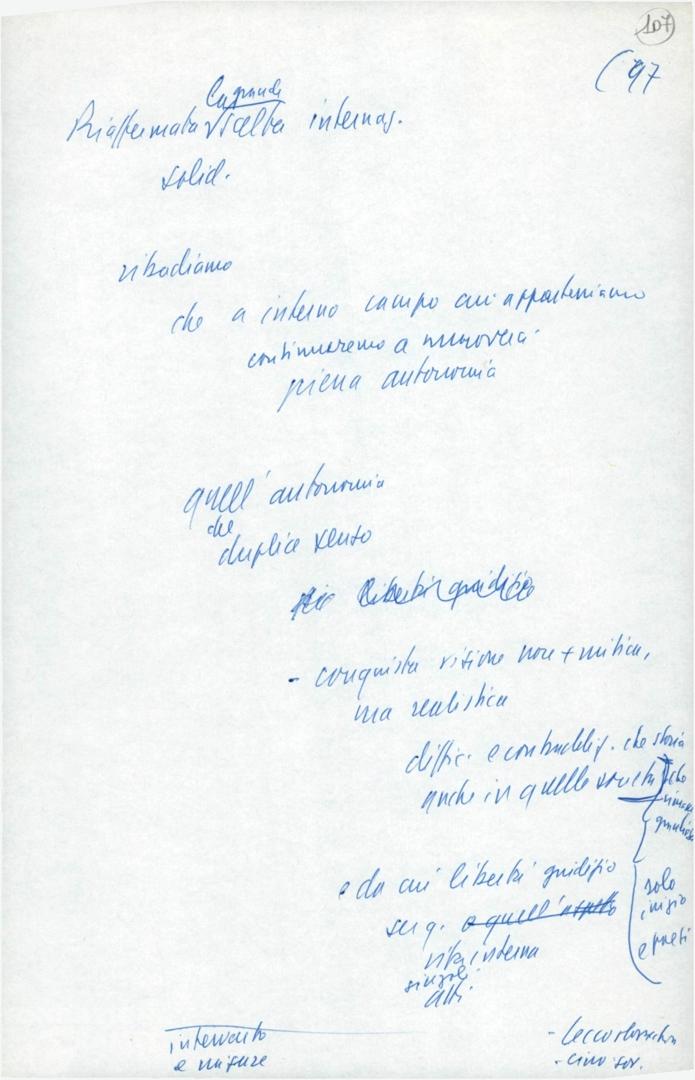 107
('97
La grande
Riaffermata scelta internaz.
solid.
ribadiamo
che a interno campo cui apparteniamo
continueremo a muoverci
piena autonomia
quell'autonomia
che
duplice senso
libertà giudizio
- conquista visione non + mitica,
ma realistica
diffic. e contraddiz. che storia
anche in quelle società
e da cui libertà giudizio
su q. o quell'aspetto
vita interna
singoli
atti.
solo
inizio
e poeti
intervento
e misure
- Cecoslovacchia
- cino sov.